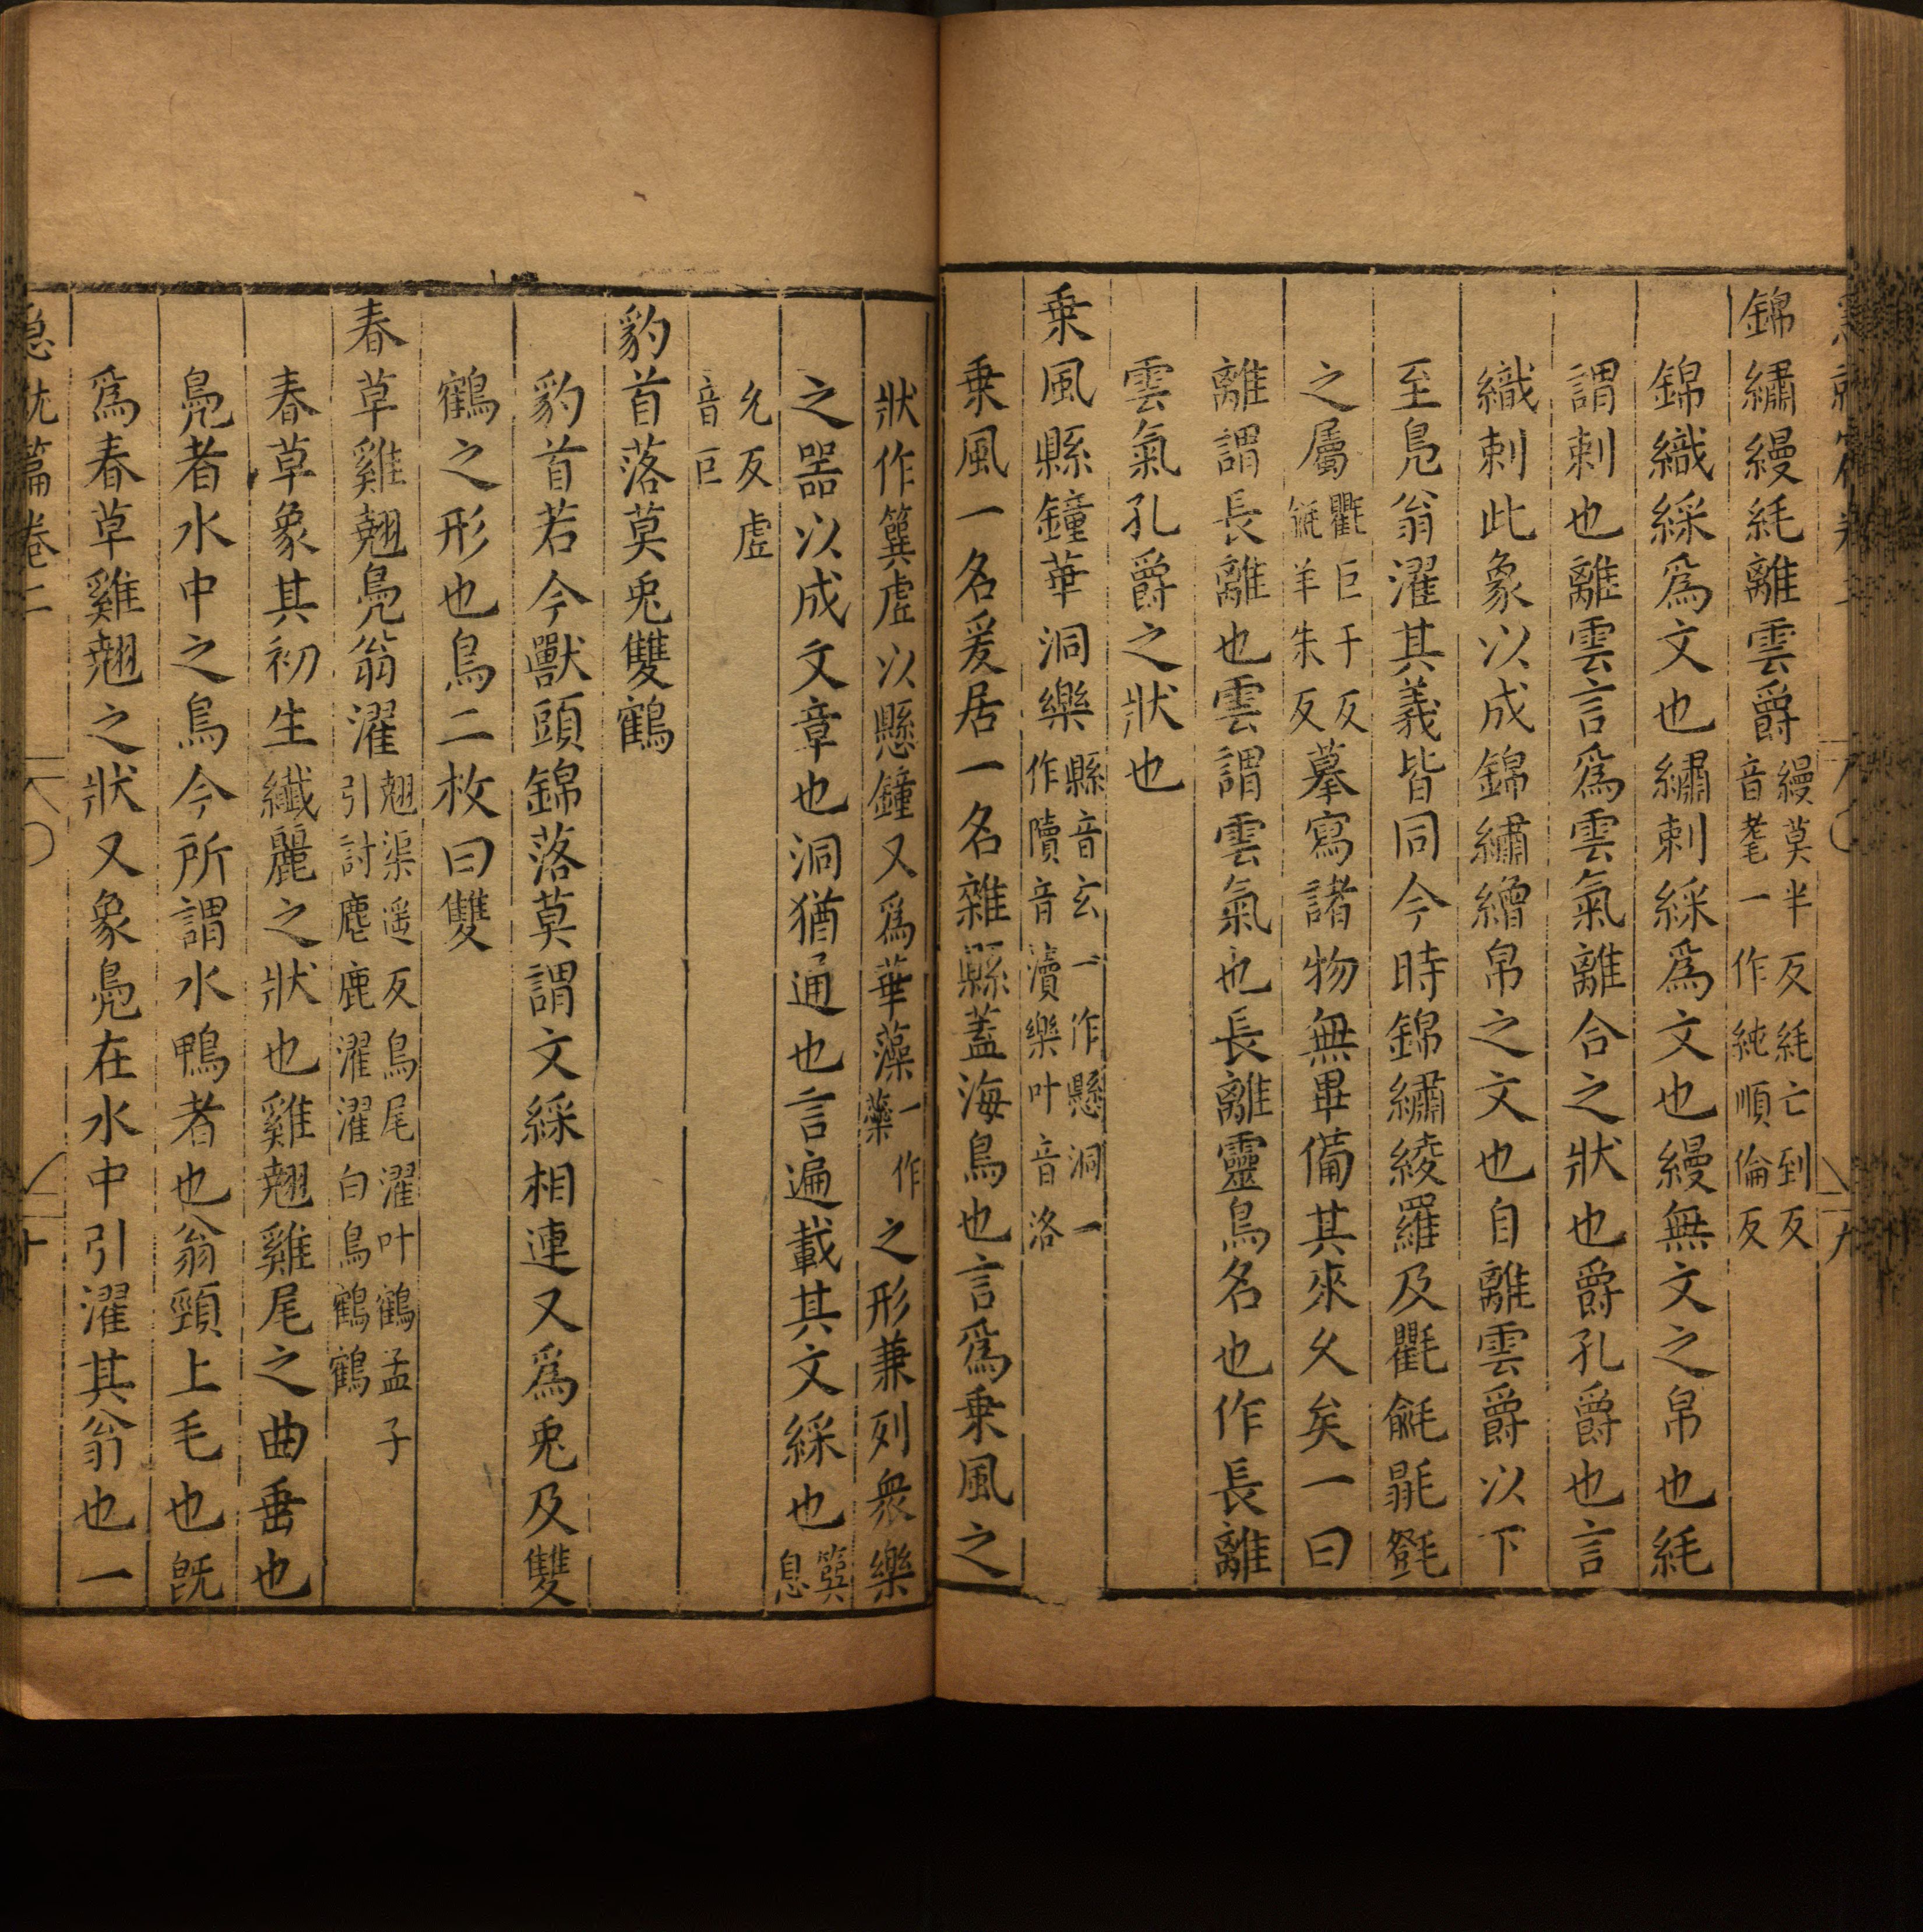 錦繡縵紕離雲爵縵莫半反紕亡到反音耄一作純順倫反
錦織綵爲文也繡刺綵爲文也縵無文之帛也紕
謂刺也離雲言爲雲氣離合之狀也爵孔爵也言
織刺此象以成錦繡繒帛之文也自離雲爵以下
至鳧翁濯其義皆同今時錦繡綾羅及氍毹㲪㲪
之屬氍巨于反毹羊朱反摹寫諸物無畢備其來久矣一曰
離謂長離也雲謂雲氣也長離靈鳥名也作長離
雲氣孔爵之狀也
乗風縣鐘華洞樂縣音玄一作懸洞一作隤音瀆樂叶音洛
乗風一名爰居一名雜縣蓋海鳥也言爲乗風之
狀作簨虡以懸鐘又爲華藻一作蘂之形兼列衆樂
之噐以成文章也洞猶通也言遍載其文綵也簨息
允反虡音巨
豹首落莫兎雙鶴
豹首若今獸頭錦落莫謂文綵相連又爲兎及雙
鶴之形也鳥二枚曰雙
春草雞翹鳧翁濯翹渠遥反鳥尾濯叶鶴孟子引討麀鹿濯濯白鳥鶴鶴
春草象其初生纎麗之狀也雞翹雞尾之曲垂也
鳧者水中之鳥今所謂水鴨者也翁頸上毛也旣
爲春草雞翹之狀又象鳧在水中引濯其翁也一
急就篇卷二 十